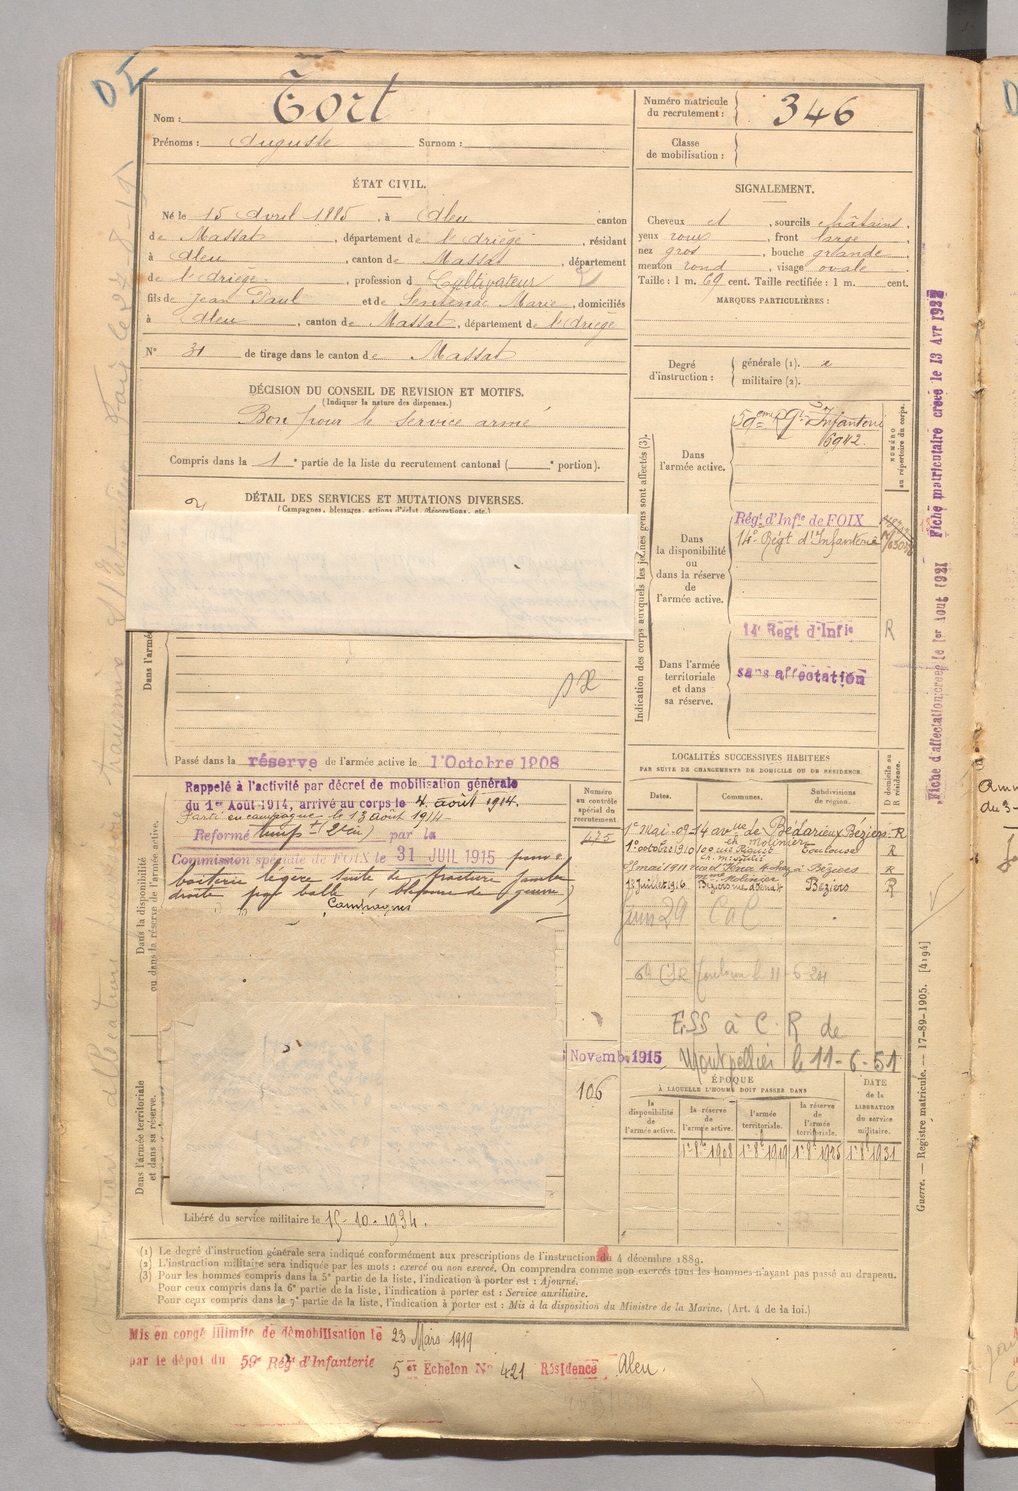 Nom : Tort
Prénoms : Auguste Surnom :
Numéro matricule
du recrutement : 346
Classe
de mobilisation :
ÉTAT CIVIL.
Né le 15 Avril 1885, à Aleu canton
de Massat, département de l'Ariège, résidant
à Aleu, canton de Massat, département
de l'Ariège, profession de Cultivateur
fils de Jean Paul et de Sentenac Marie, domiciliés
à Aleu, canton de Massat, département de l'Ariège
N° 31 de tirage dans le canton de Massat
SIGNALEMENT.
Cheveux et, sourcils châtains,
yeux roux, front large,
nez gros, bouche grande,
menton rond, visage ovale.
Taille : 1 m. 69 cent. Taille rectifiée : 1 m. cent.
MARQUES PARTICULIÈRES :
Degré
d'instruction :
générale (1).
militaire (2).
DÉCISION DU CONSEIL DE REVISION ET MOTIFS.
(Indiquer la nature des dispenses.)
Bon pour le service armé
Compris dans la 1e partie de la liste du recrutement cantonal ( e portion).
DÉTAIL DES SERVICES ET MUTATIONS DIVERSES.
(Campagnes, blessures, actions d'éclat, décorations, etc.)
Indication des corps auxquels les jeunes gens sont affectés (3).
NUMÉRO
au répertoire du corps.
Dans
l'armée active.
59eme Rgt d'Infanterie
Dans
la disponibilité
ou
dans la réserve
de
l'armée active.
Régt d'Infie de FOIX
14e Régt d'Infanterie
14e Regt d'Infie R
Dans l'armée
territoriale
et dans
sa réserve.
sans affectation
Dans l'armée
Passé dans la réserve de l'armée active le 1'Octobre 1908
Dans la disponibilité
ou dans la réserve de l'armée active.
Rappelé à l'activité par décret de mobilisation générale
du 1er Août 1914, arrivé au corps le 4 août 1914.
Parti en campagne le 13 août 1914
Réformé tempre (2e cn) par la
Commission spéciale de FOIX le 31 JUIL 1915 pour
boiterie légère suite de fracture jambe
droite par balle (blessure de guerre)
Campagnes
Numéro
au contrôle
spécial du
recrutement
475
Novemb. 1915
106
LOCALITÉS SUCCESSIVES HABITÉES
PAR SUITE DE CHANGEMENTS DE DOMICILE OU DE RÉSIDENCE.
D domicile ou
R résidence.
Dates. Communes. Subdivisions
de région.
1er Mai-09 14 avenue de Bédarieux Béziers R
ch Molinier
1er octobre 1910 Toulouse R
mai 1911 Béziers R
Juillet 1916 Béziers Béziers R
juin 29 CaC
11-6-24
ESS à C R de
Montpellier le 11-6-51
ÉPOQUE
À LAQUELLE L'HOMME DOIT PASSER DANS
DATE
de la
LIBÉRATION
du service
militaire.
la
disponibilité
de
l'armée active.
la réserve
de
l'armée active.
l'armée
territoriale.
la réserve
de
l'armée
territoriale.
1er 8bre 1908 1er 8bre 1919 1er 8bre 1925 1er 8bre 1931
Dans l'armée territoriale
et dans sa réserve.
Libéré du service militaire le 15-10-1934.
(1) Le degré d'instruction générale sera indiqué conformément aux prescriptions de l'instruction du 4 décembre 1889.
(2) L'instruction militaire sera indiquée par les mots : exercé ou non exercé. On comprendra comme non exercés tous les hommes n'ayant pas passé au drapeau.
(3) Pour les hommes compris dans la 5e partie de la liste, l'indication à porter est : Ajourné.
Pour ceux compris dans la 6e partie de la liste, l'indication à porter est : Service auxiliaire.
Pour ceux compris dans la 7e partie de la liste, l'indication à porter est : Mis à la disposition du Ministre de la Marine. (Art. 4 de la loi.)
Mis en congé illimité de démobilisation le 23 Mars 1919
par le dépôt du 59e Régt d'Infanterie 5 et Echelon N° 421 Résidence Aleu.
Fiche d'affectation creée le 1er Aout 1921 Fiche matriculaire creeé le 13 Avr 1922
Guerre. — Registre matricule. — 17-89-1905. [4194]